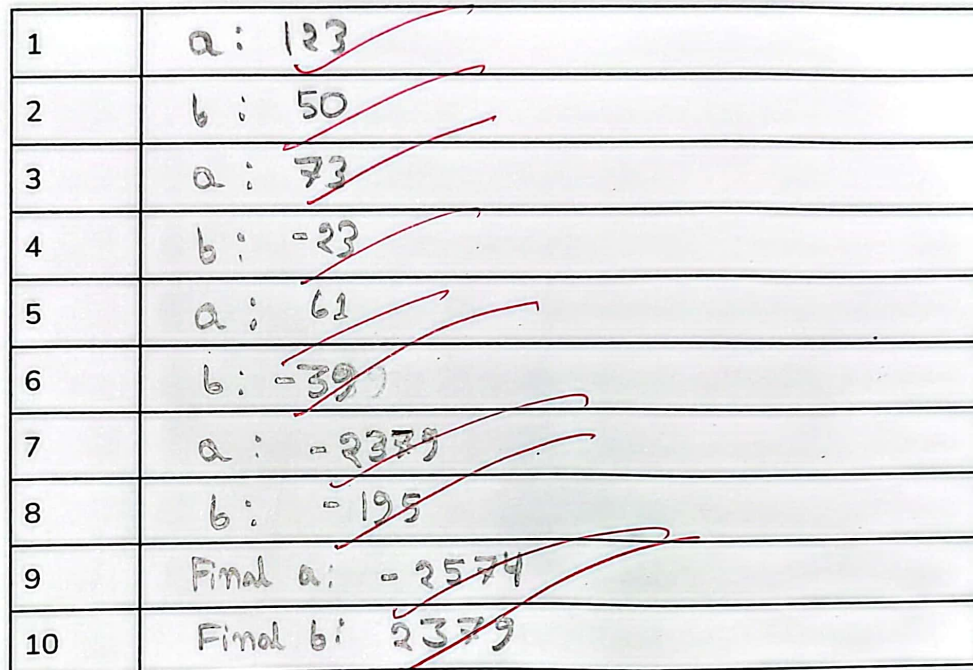 1 a : 123
2 b : 50
3 a : 73
4 b : -23
5 a : 61
6 b : -39
7 a : -2379
8 b : -195
9 Final a: -2574
10 Final b: 2379